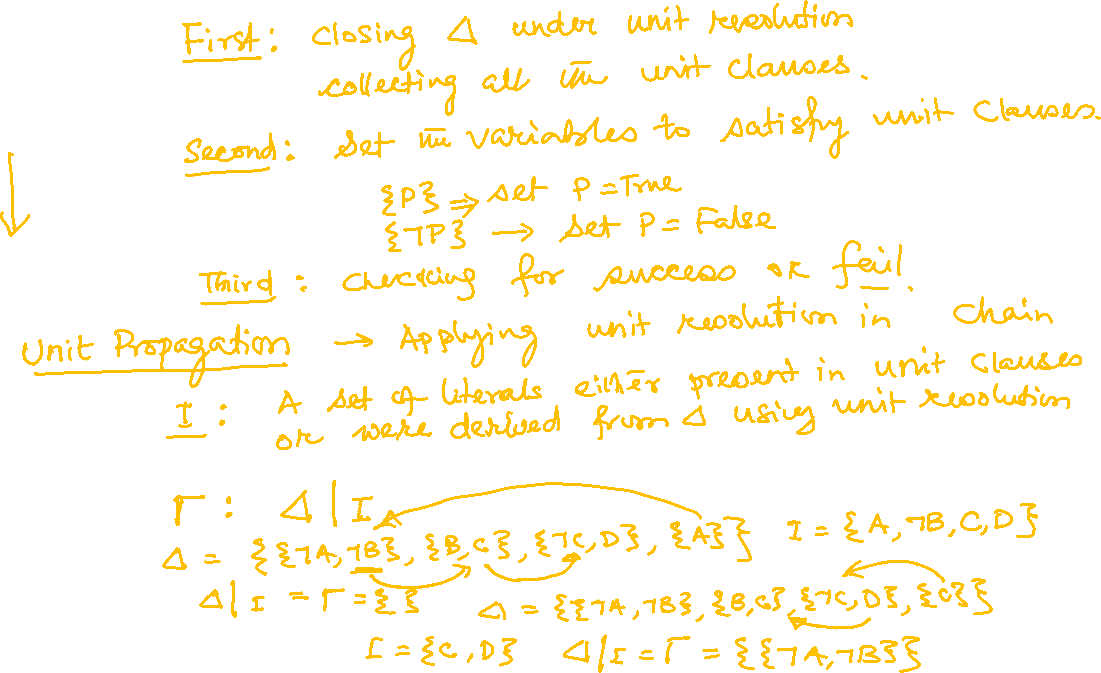 First: Closing Δ under unit resolution
collecting all the unit clauses.
Second: Set the variables to satisfy unit Clauses.
{P} ⇒ set P = True
{¬P} → Set P = False
Third: Checking for success or fail.
Unit Propagation → Applying unit resolution in Chain
I: A set of literals either present in unit Clauses
or were derived from Δ using unit resolution
Γ: Δ|I
Δ = {{¬A,¬B}, {B,C}, {¬C,D}, {A}} I = {A,¬B,C,D}
Δ|I = Γ = { } Δ = {{¬A,¬B}, {B,C}, {¬C,D}, {C}}
I = {C,D} Δ|I = Γ = {{¬A,¬B}}